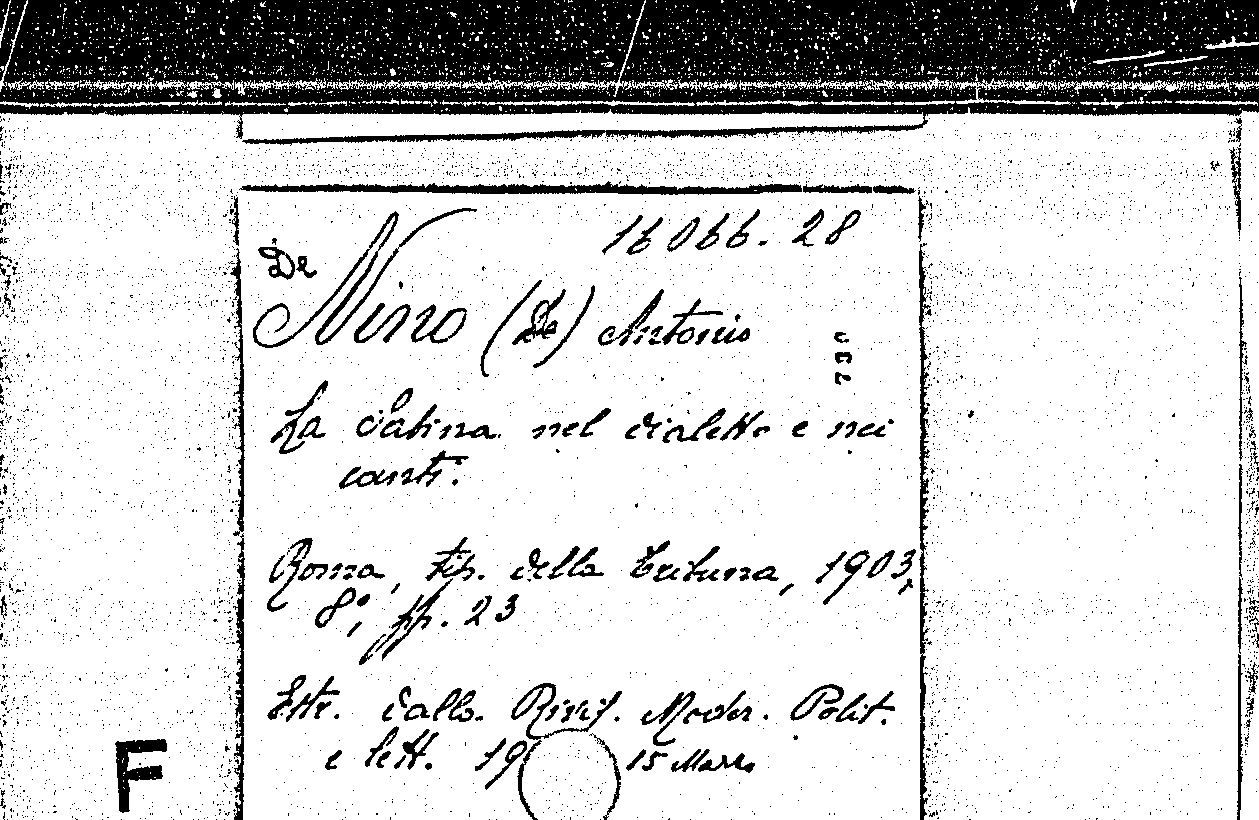 16066.28
De
Nino (De) Antonio
La nel dialetto e nei
canti.
Roma, tip. della Tribuna, 1903,
8°, pp. 23
Estr. dalla Rivist. Moder. Polit.
e lett. 19 15 Marzo
F